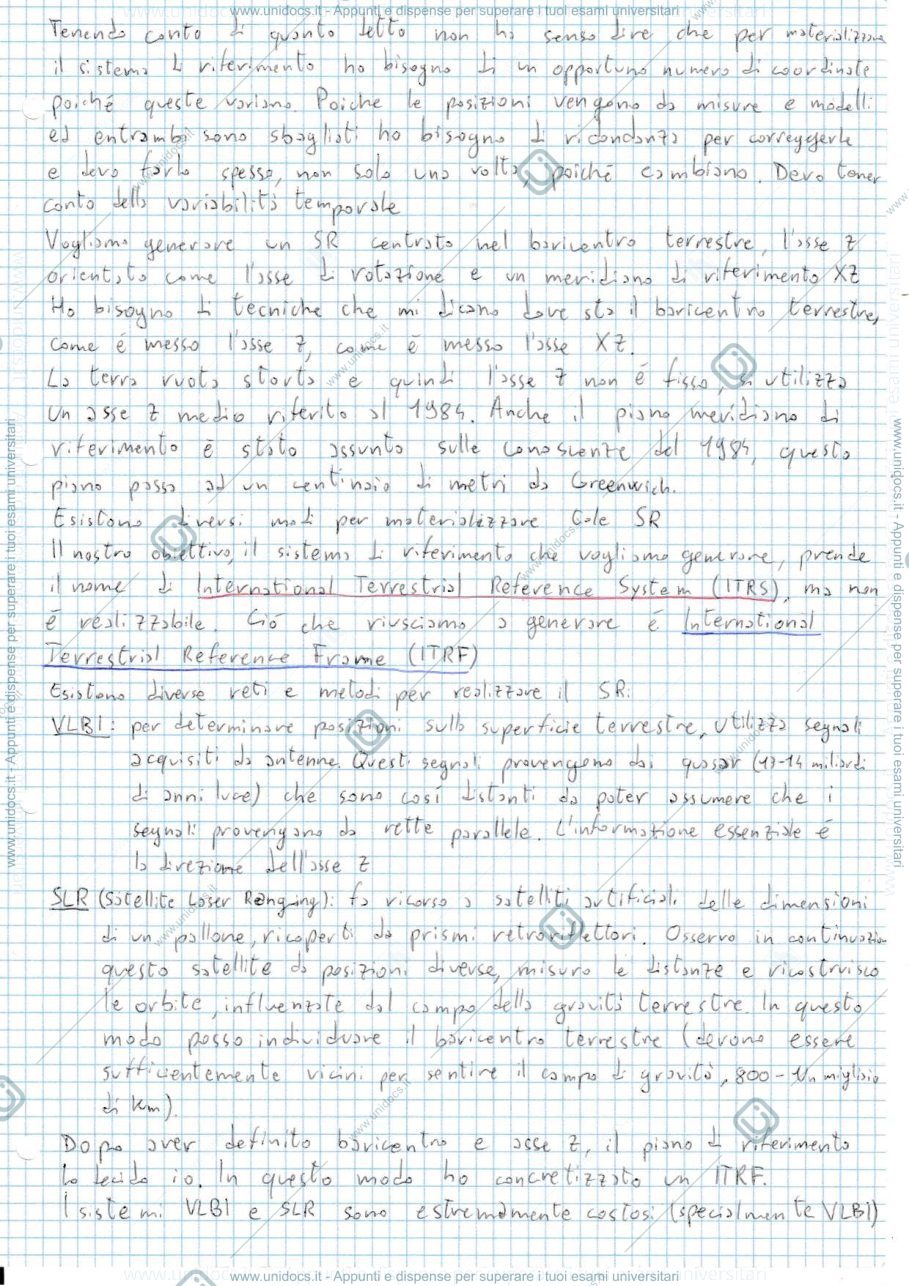 www.unidocs.it - Appunti e dispense per superare i tuoi esami universitari
Tenendo conto di quanto detto non ha senso dire che per materializzare
il sistema di riferimento ho bisogno di un opportuno numero di coordinate
poiché queste variano. Poiche le posizioni vengono da misure e modelli
ed entrambi sono sbagliati ho bisogno di ridondanza per correggerle
e devo farlo spesso, non solo una volta, poiché cambiano. Devo tener
conto della variabilità temporale
Vogliamo generare un SR centrato nel baricentro terrestre, l'asse Z
orientato come l'asse di rotazione e un meridiano di riferimento XZ
Ho bisogno di tecniche che mi dicano dove sta il baricentro terrestre,
come é messo l'asse Z, come é messo l'asse XZ.
La terra ruota storta e quindi l'asse Z non é fisso, si utilizza
un asse Z medio riferito al 1984. Anche il piano meridiano di
riferimento é stato assunto sulle conoscenze del 1984, questo
piano passa ad un centinaio di metri da Greenwich.
Esistono diversi modi per materializzare tale SR
Il nostro obiettivo, il sistema di riferimento che vogliamo generare, prende
il nome di International Terrestrial Reference System (ITRS), ma non
é realizzabile. Ció che riusciamo a generare é International
Terrestrial Reference Frame (ITRF)
Esistono diverse reti e metodi per realizzare il SR:
VLBI: per determinare posizioni sulla superficie terrestre, utilizza segnali
acquisiti da antenne. Questi segnali provengono dai quasar (13-14 miliardi
di anni luce) che sono cosí distanti da poter assumere che i
segnali provengano da rette parallele. L'informazione essenziale é
la direzione dell'asse Z
SLR (Satellite Laser Ranging): fa ricorso a satelliti artificiali delle dimensioni
di un pallone, ricoperti da prismi retroriflettori. Osservo in continuazione
questo satellite da posizioni diverse, misuro le distanze e ricostruisco
le orbite, influenzate dal campo della gravità terrestre. In questo
modo posso individuare il baricentro terrestre (devono essere
sufficientemente vicini per sentire il campo di gravità, 800 - Un migliaio
di km).
Dopo aver definito baricentro e asse Z, il piano di riferimento
lo decido io. In questo modo ho concretizzato un ITRF.
I sistemi VLBI e SLR sono estremamente costosi (specialmente VLBI)
www.unidocs.it - Appunti e dispense per superare i tuoi esami universitari